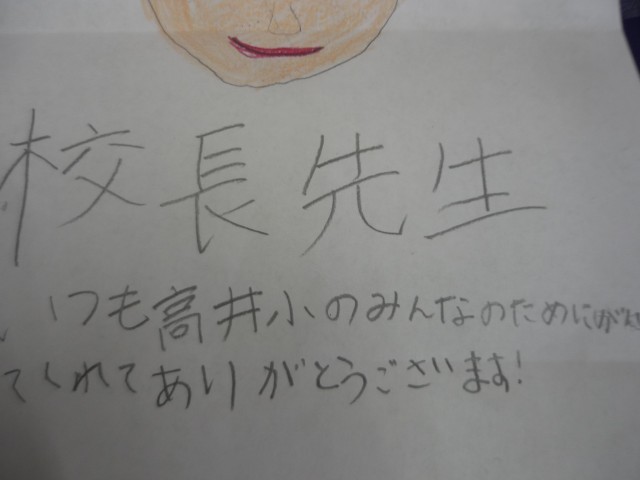 校長先生
いつも高井小のみんなのためにがん
てくれてありがとうございます!